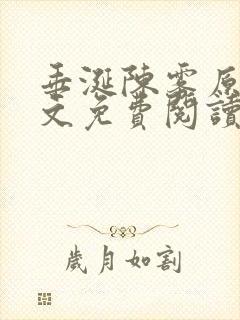 垂涎陳雾原
文免費閱讀
歲月如割